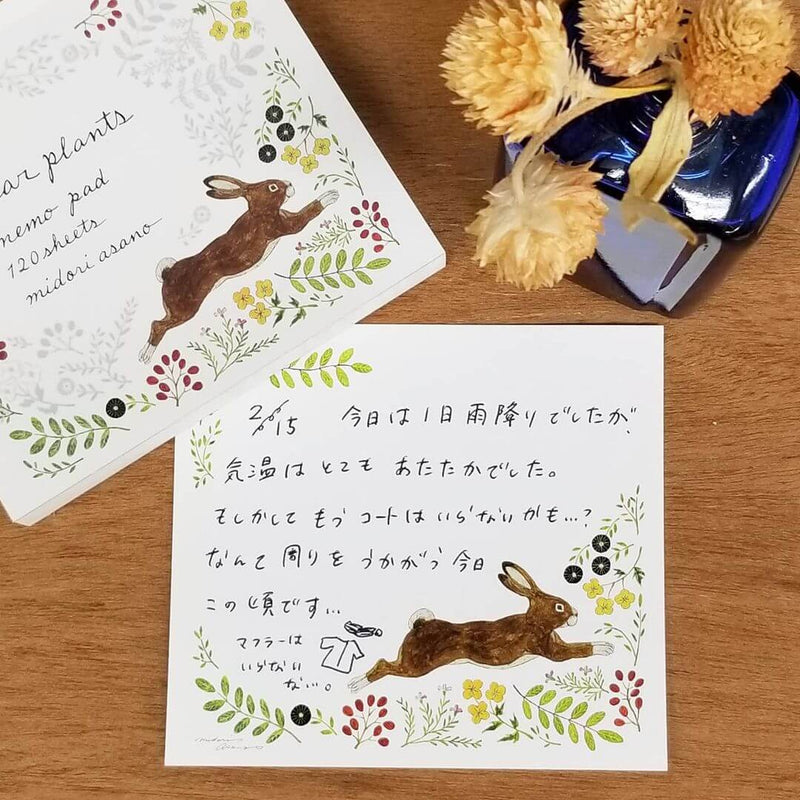 ar plants
memo pad
120 sheets
midori asano
2/15 今日は1日雨降りでしたが、
気温はとても あたたかでした。
もしかして もう コートは いらないかも…?
なんて 周りを うかがう 今日
この頃です…
マフラーは
いらない
midori
asano